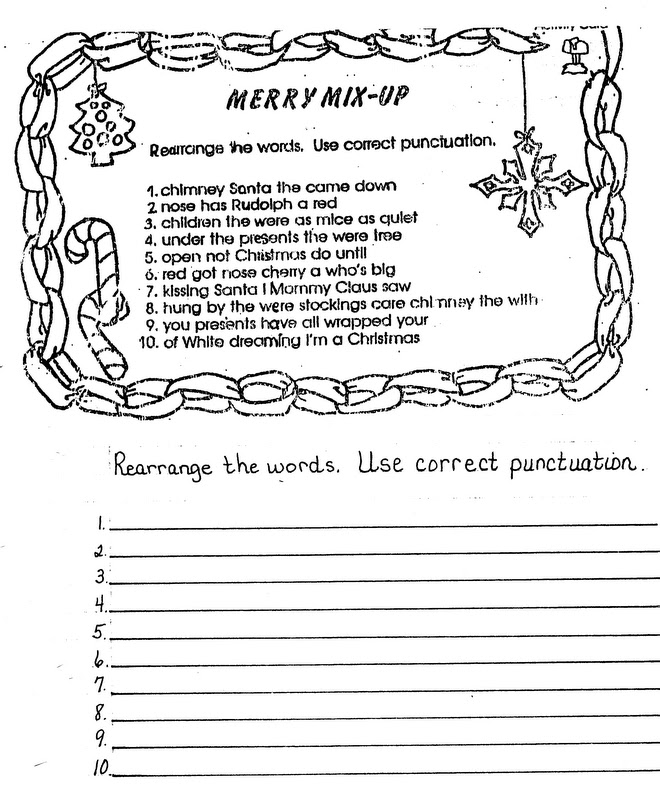 MERRY MIX-UP
Rearrange the words. Use correct punctuation.
1. chimney Santa the came down
2 nose has Rudolph a red
3. children the were as mice as quiet
4. under the presents the were tree
5. open not Christmas do until
6. red got nose cherry a who's big
7. kissing Santa I Mommy Claus saw
8. hung by the were stockings care chimney the with
9. you presents have all wrapped your
10. of White dreaming I'm a Christmas
Rearrange the words. Use correct punctuation.
1.
2.
3.
4.
5.
6.
7.
8.
9.
10.